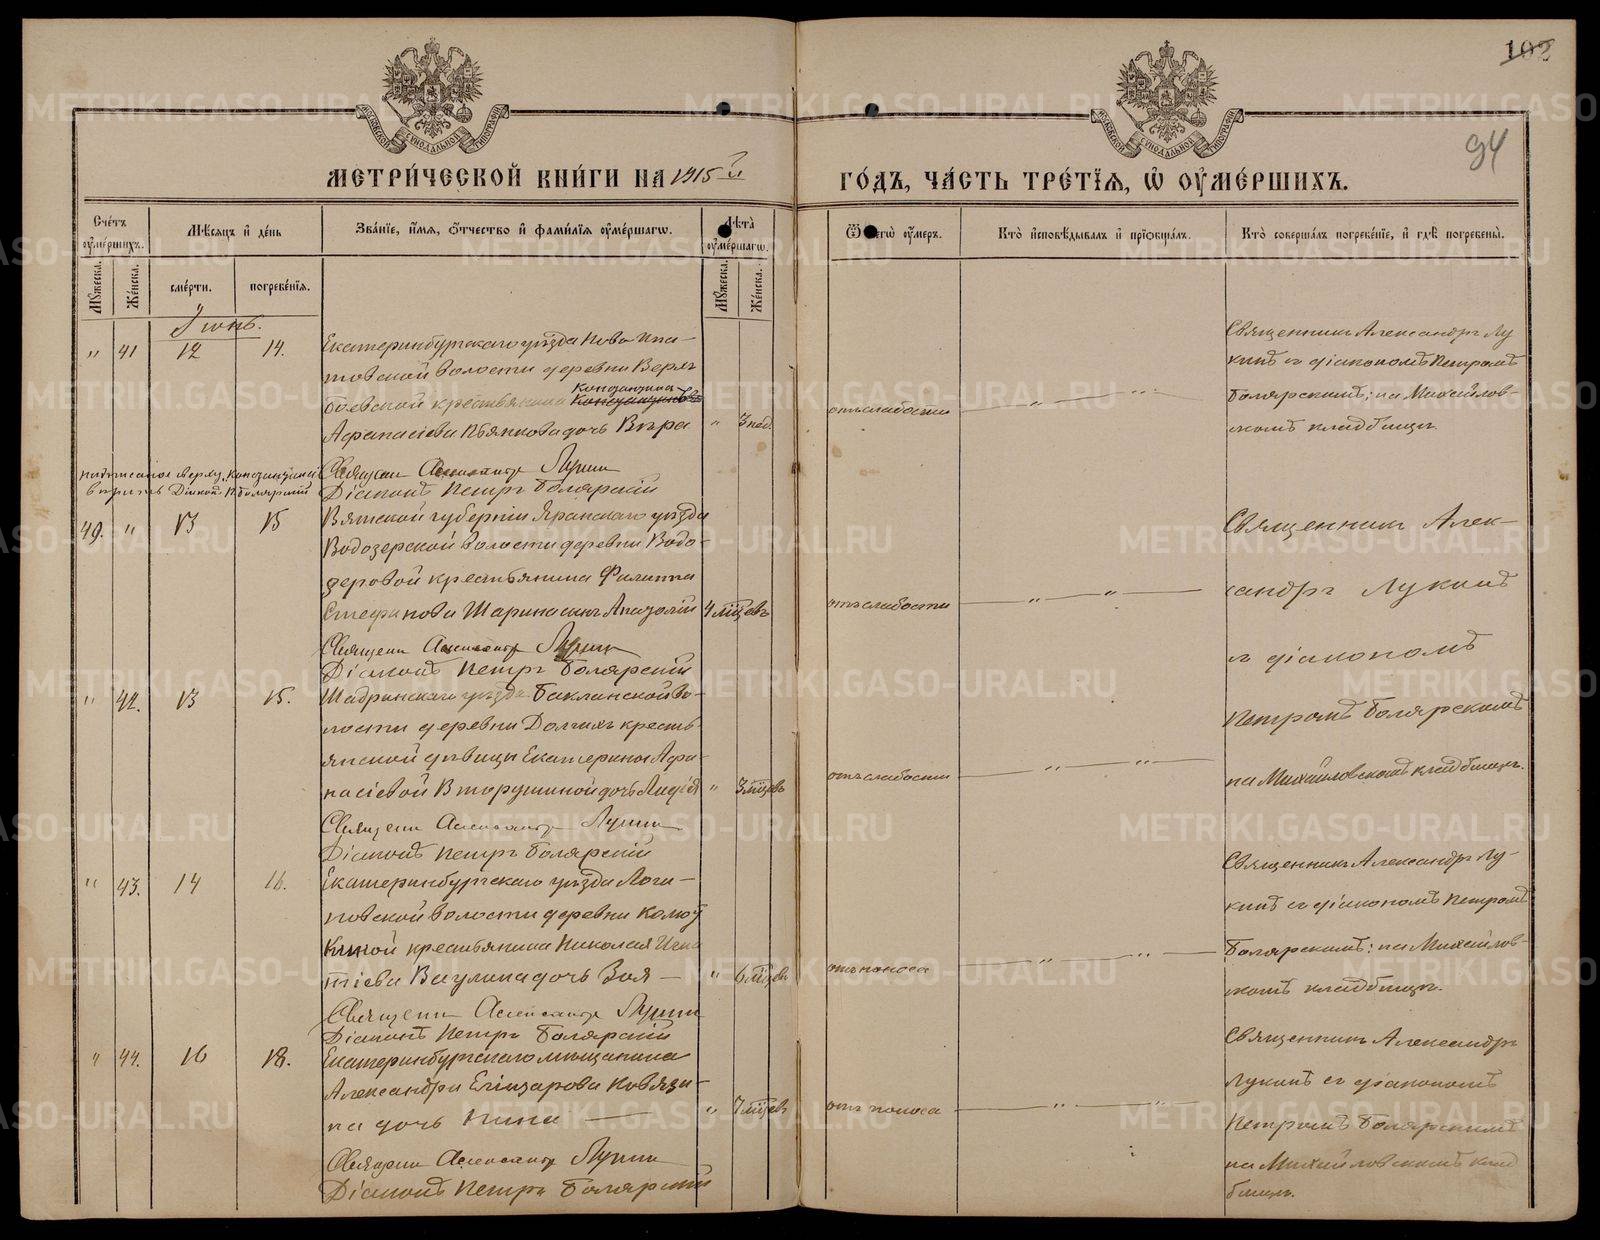 102
94
МЕТРИ́ЧЕСКОЙ КНИ́ГИ НА 1915й
ГО́ДЪ, ЧА́СТЬ ТРЕ́ТІЯ, Ѿ ОУМЕ́РШИХЪ.
Сче́тъ оуме́ршихъ.
Мѣсяцъ и де́нь
Зва́ніе, и́мя, о́тчество и фами́лія оуме́ршагѡ.
Лѣта̀ оуме́ршагѡ.
Ѿ чегѡ̀ оу́меръ.
Кто̀ исповѣдывалъ и пріѡбща́лъ.
Кто̀ соверша́лъ погребе́ніе, и гдѣ̀ погребены̀.
Мꙋ́жеска.
Же́нска.
сме́рти.
погребе́нія.
Мꙋ́жеска.
Же́нска.
Іюнь.
" 41 12 14.
Екатеринбургскаго уѣзда Ново Ипа-
товской волости деревни Верх
боевской крестьянина
Афанасіева Пьянкова дочь Вѣра
" 3 нед.
отъ слабости
— " — " —
Священникъ Александръ Лу
кинъ съ діакономъ Петромъ
Боярскимъ; на Михайлов-
скомъ кладбищѣ.
Священ Александръ Лукин
Діаконъ Петръ Боярскій
49. " 13 15
Вятской губерніи Яранскаго уѣзда
Водозерской волости деревни Водо-
зеровой крестьянина Филиппа
Стефанова Шарина сынъ Анатолій
4 мѣсцевъ
отъ слабости
— " — " —
Священникъ Алек-
сандръ Лукинъ
съ діакономъ
Петромъ Боярскимъ
на Михайловскомъ кладбищѣ.
Священ Александръ Лукин
Діаконъ Петръ Боярскій
" 42. 13 15.
Шадринскаго уѣзда Бакланской во-
лости деревни Долгихъ кресть-
янской дѣвицы Екатерины Афа-
насіевой Вторушиной дочь Лидія
" 3 мѣсцевъ
отъ слабости
— " — " —
Священ Александръ Лукин
Діаконъ Петръ Боярскій
" 43. 14 16.
Екатеринбургскаго уѣзда Логи-
новской волости деревни Колют
киной крестьянина Николая Игна
тіева Ваулина дочь Зоя —
" 6 мѣсцевъ
отъ поноса
— " — " —
Священникъ Александръ Лу-
кинъ съ діакономъ Петромъ
Боярскимъ; на Михайлов-
скомъ кладбищѣ.
Священ Александръ Лукин
Діаконъ Петръ Боярскій
" 44. 16 18.
Екатеринбургскаго мѣщанина
Александра Еліазарова Ковязи-
на дочь Нина —
" 7 мѣсцевъ
отъ поноса
— " — " —
Священникъ Александръ
Лукинъ съ діакономъ
Петромъ Боярскимъ
на Михайловскомъ клад
бищѣ.
Священ Александръ Лукин
Діаконъ Петръ Боярскій
METRIKI.GASO-URAL.RU